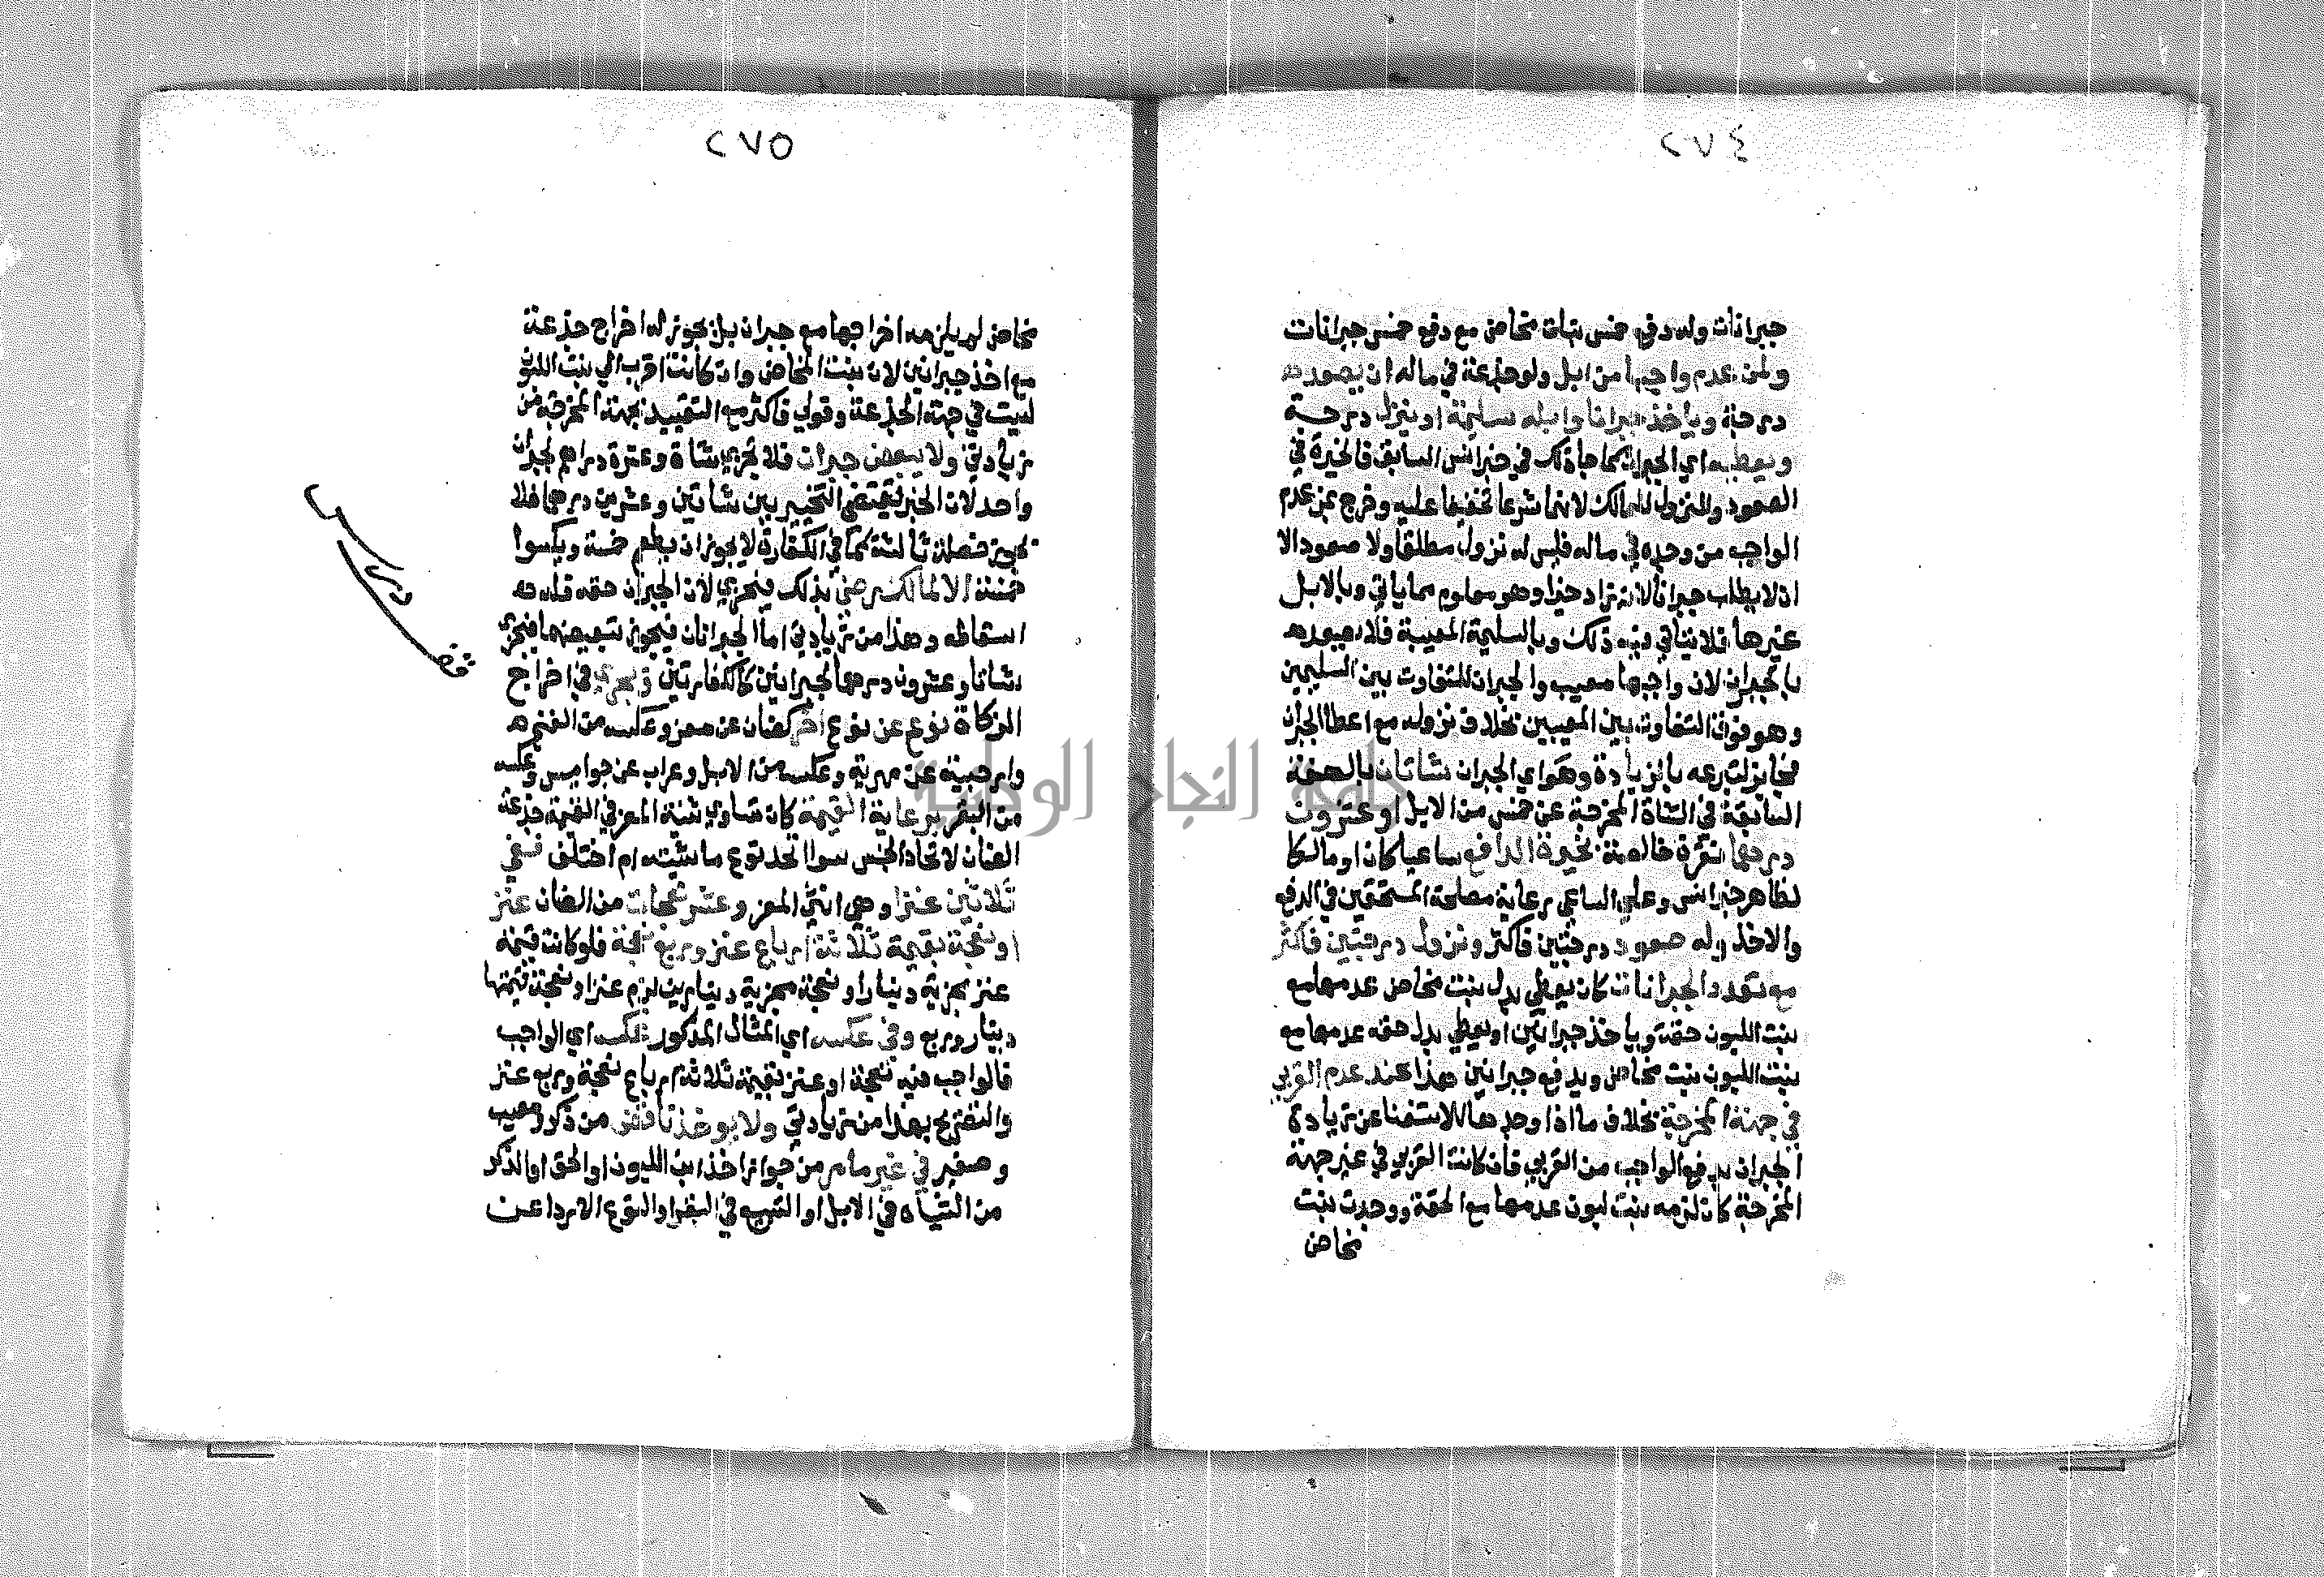 ٢٧٤
جبرانات وله دفع خمس بنات مخاض مع دفع خمس جبرانات
ولمن عدم واجبها من ابل ولو جذعة في ماله ان يصعد
درجة وياخذ جبرانا وابله سليمة او ينزل درجة
ويعطيه اي الجبران كما جا ذلك في خبر انس السابق فالخيرة في
الصعود والنزول للمالك لانهما شرعا تخفيفا عليه وخرج بمن عدم
الواجب من وجده في ماله فليس له نزول مطلقا ولا صعود الا
ان لا يطلب جبرانا لانه زاد خيرا وهو معلوم مما ياتي وبالابل
غيرها فلا ياتي فيه ذلك وبالسليمة المعيبة فلا يصعد
بالجبران لان واجبها معيب والجبران للتفاوت بين السليمين
وهو فوق التفاوت بين المعيبين بخلاف نزوله مع اعطا الجبران
فجايز لتبرعه بالزيادة وهو اي الجبران شاتان بالصفة
السابقة في الشاة المخرجة عن خمس من الابل او عشرون
درهما نقرة خالصة بخيرة الدافع ساعيا كان او مالكا
لظاهر خبر انس وعلى الساعي رعاية مصلحة المستحقين في الدفع
والاخذ وله صعود درجتين فاكثر ونزول درجتين فاكثر
مع تعدد الجبرانات كان يعطي بدل بنت مخاض عدمها مع
بنت اللبون حقة وياخذ جبرانين او يعطي بدل حقة عدمها مع
بنت اللبون بنت مخاض ويدفع جبرانين هذا عند عدم القربى
في جهة المخرجة بخلاف ما اذا وجدها للاستغنا عن زيادة
الجبران بدفع الواجب من القربى فان كانت القربى في غير جهة
المخرجة كان لزمه بنت لبون عدمها مع الحقة ووجدت بنت
مخاض
٢٧٥
مخاض لم يلزمه اخراجها مع جبران بل يجوز له اخراج جذعة
مع اخذ جبرانين لان بنت المخاض وان كانت اقرب الى بنت اللبون
ليست في جهة الجذعة وقولي فاكثر مع التقييد بجهة المخرجة من
زيادتي ولا يبعض جبران فلا تجزي شاة وعشرة دراهم لجبران
واحد لان الخبر يقتضي التخيير بين شاتين وعشرين درهما فلا
تجوز خصلة ثالثة كما في الكفارة لا يجوز ان يطعم خمسة ويكسوا
خمسة الا لمالك رضي بذلك فيجزي لان الجبران حقه فله
اسقاطه وهذا من زيادتي اما الجبرانان فيجوز تبعيضهما فيجزي
شاتان وعشرون درهما لجبرانين كالكفارتين ويجزي في اخراج
الزكاة نوع عن نوع اخر كضان عن معز وعكسه من الغنم
وارحبية عن مهرية وعكسه من الابل وعراب عن جواميس وعكسه
من البقر برعاية القيمة كان تساوي ثنية المعز في القيمة جذعة
الضان لاتحاد الجنس سوا اتحد نوع ماشيته ام اختلف ففي
ثلاثين عنزا وهي انثى المعز وعشر نعجات من الضان عنز
او نعجة بقيمة ثلاثة ارباع عنز وربع نعجة فلو كانت قيمة
عنز مجزية دينارا ونعجة مجزية دينارين لزم عنز او نعجة قيمتها
دينار وربع وفي عكسه اي المثال المذكور عكسه اي الواجب
فالواجب فيه نعجة او عنز بقيمة ثلاثة ارباع نعجة وربع عنز
والتصريح بهذا من زيادتي ولا يوخذ ناقص من ذكر ومعيب
وصغير في غير ما مر من جواز اخذ ابن اللبون او الحق او الذكر
من الشياه في الابل او التبيع في البقر او النوع الاردا عن